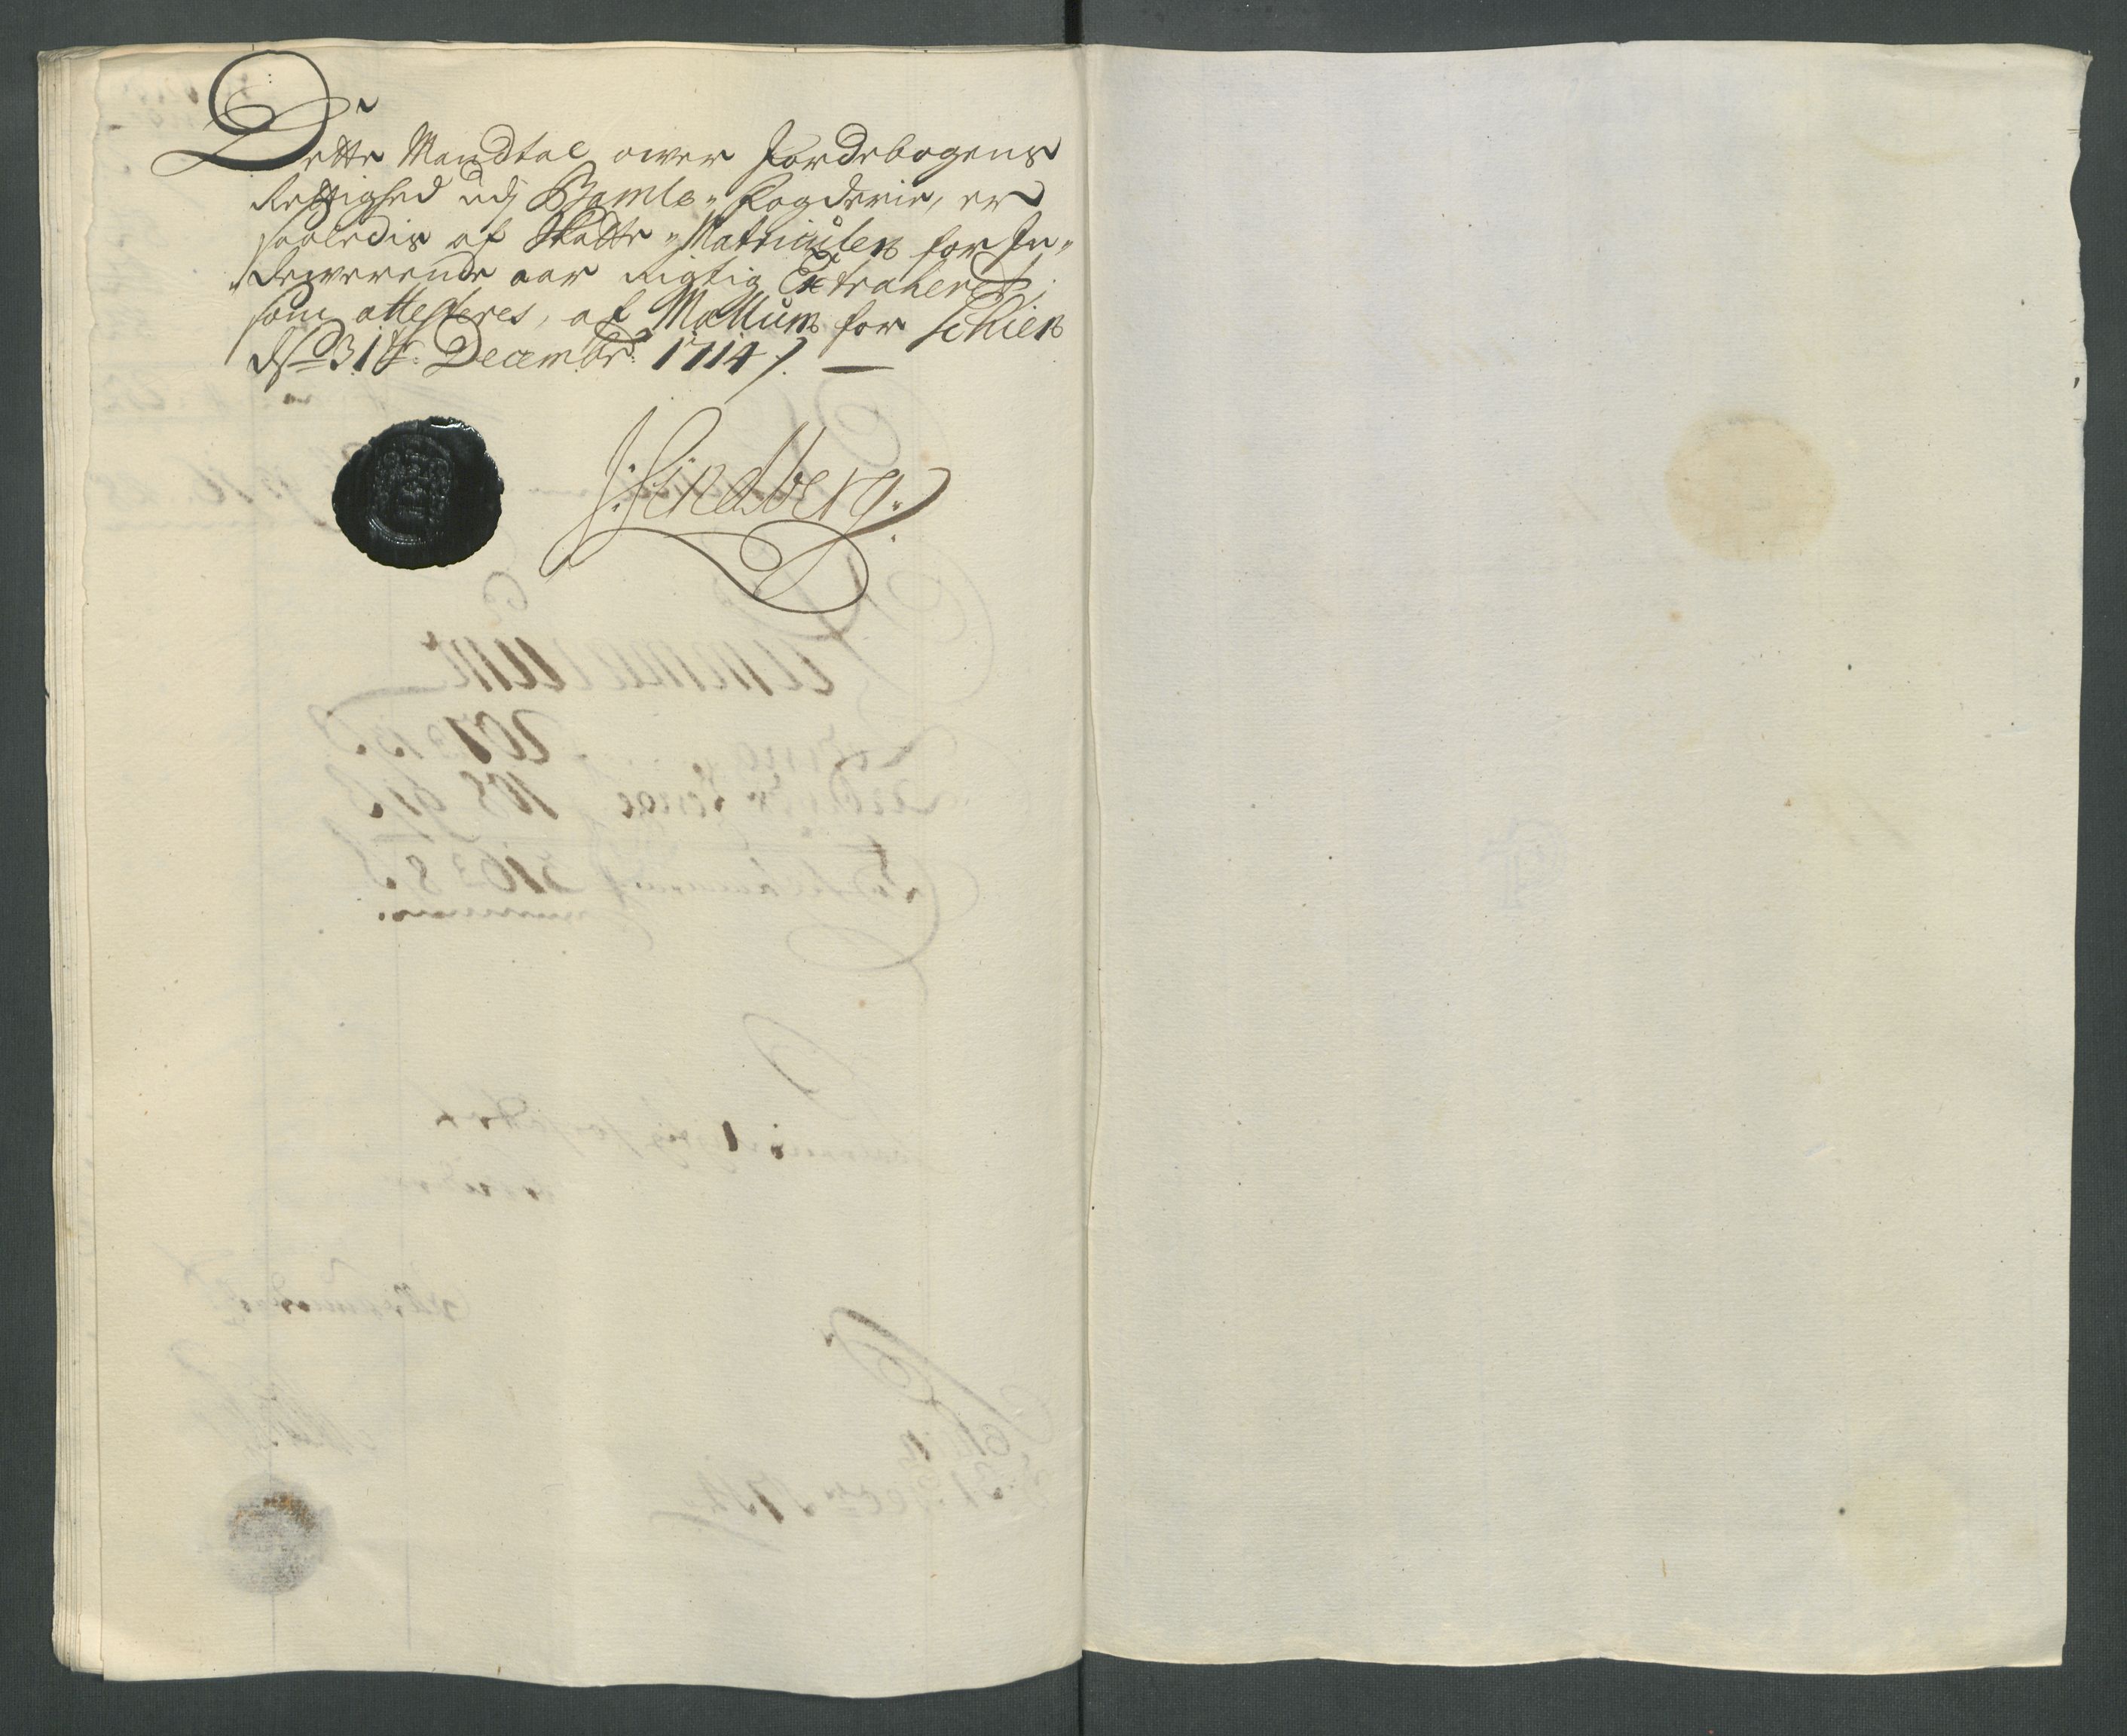 Dette Mandtal ower Jordebogens
Rettighed udj Bamle„ Fogderie, er
saaledis af Skatte„Matriculen for In„
„dewerende aar rigtig Extraheret,
som attesteres, af Mællum for Schien
dend 31te Decembr: 1714 /. —
J: Lindberg.